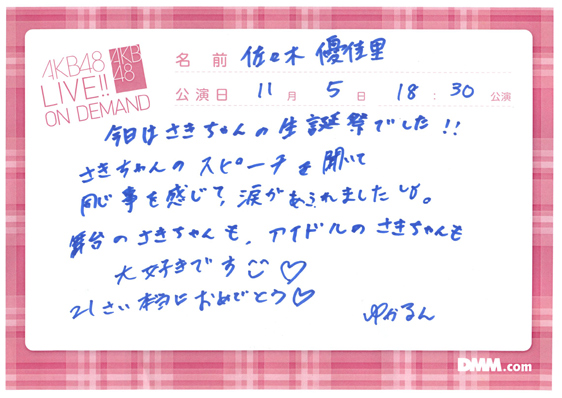 AKB48
LIVE!!
ON DEMAND
AKB
48
名前 佐々木 優佳里
公演日 11月 5日 18:30 公演
今日はさきちゃんの生誕祭でした!!
さきちゃんのスピーチを聞いて
同じ事を感じて、涙があふれました
舞台のさきちゃんも、アイドルのさきちゃんも
大好きです
21さい本当におめでとう♡
ゆかるん
DMM.com